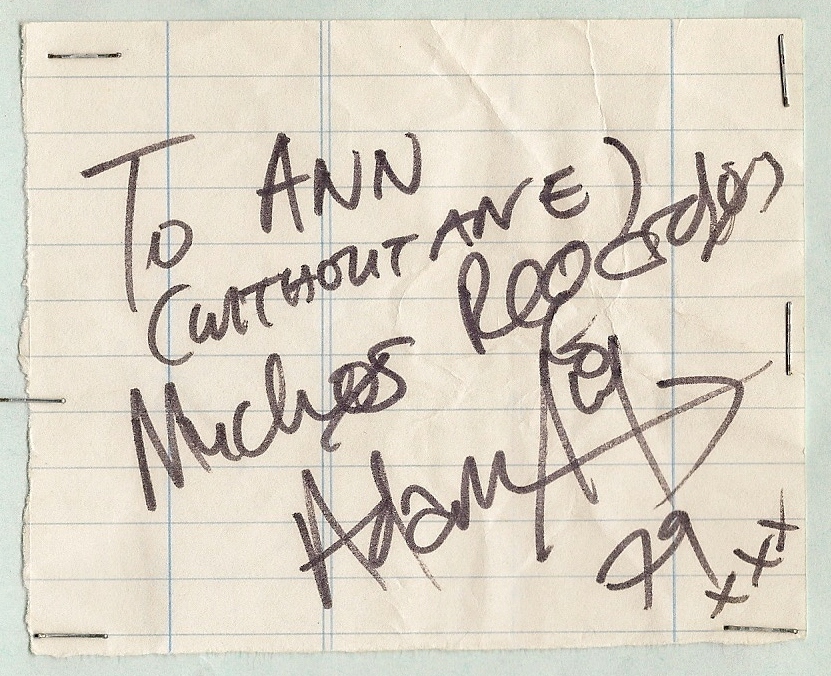 To ANN
(WITHOUT AN E)
Muchos
Adam Ant
79 xxx